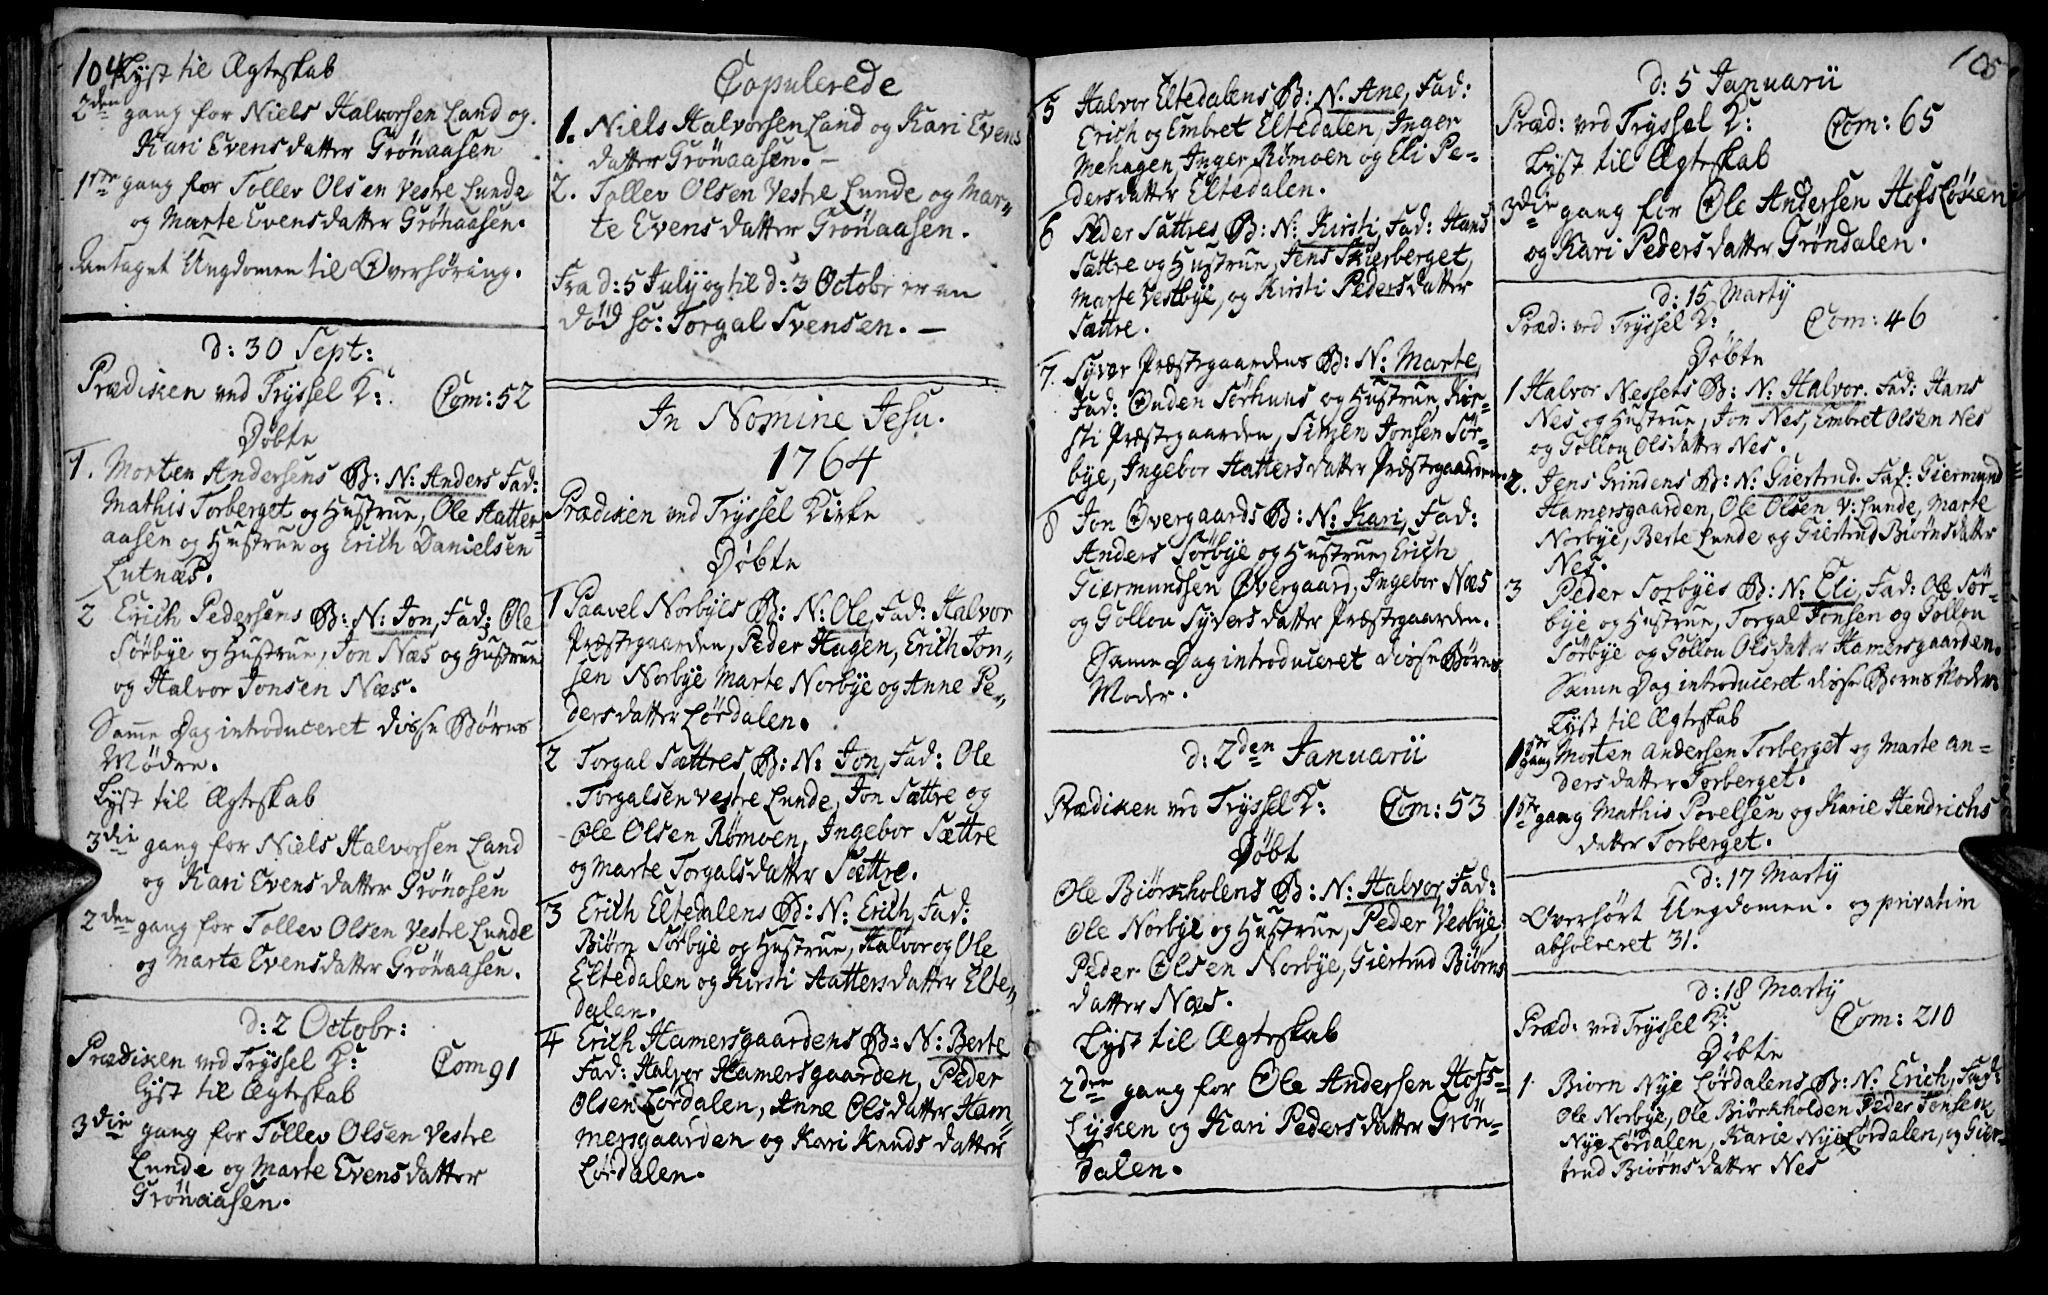 104
Lyst til Ægteskab
2den gang for Niels Halvorsen Land og
Kari Evensdatter Grönaasen
1ste gang for Tollev Olsen Vestre Lunde
og Marte Evensdatter Grönaasen.
Antaget Ungdomen til Overhøring.
d: 30 Sept:
Prædiken ved Tryssel K: Com: 52
Døbte
1. Morten Andersens B: N: Anders Fad:
Mathis Torberget og Hustrue, Ole Hatter-
aasen og Hustrue og Erich Danielsen
Lutnæs.
2 Erich Pedersens B: N: Jon, Fad: Ole
Sörbye og Hustrue, Jon Næs og Hustrue
og Halvor Jonsen Næs.
Same Dag introduceret disse Börns
Mödre.
Lyst til Ægteskab
3die gang for Niels Halvorsen Land
og Kari Evensdatter Grönosen
2den gang for Tollev Olsen Vestre Lunde
og Marte Evensdatter Grönaasen.
d: 2 Octobr:
Prædiken ved Tryssel K: Com 91
Lyst til Ægteskab
3die gang for Tollev Olsen Vestre
Lunde og Marte Evensdatter
Grönaasen.
Copulerede
1. Niels Halvorsen Land og Kari Evens
datter Grönaasen. –
2. Tollev Olsen Vestre Lunde og Mar-
te Evensdatter Grönaasen.
Fra d: 5 Julij og til d: 3 Octobr er en
död so: Torgal Svensen. –
In Nomine Jesu.
1764
Prædiken ved Tryssel Kirke
Døbte
1 Paavel Norbyes B: N: Ole, Fad: Halvor
Præstegaarden, Peder Hagen, Erich Jon-
sen Norbye Marte Norbye og Anne Pe-
dersdatter Lördalen.
2 Torgal Sættres B: N: Jon, Fad: Ole
Torgalsen vestre Lunde, Jon Sættre og
Ole Olsen Römoen, Ingebor Sættre
og Marte Torgalsdatter Sættre.
3 Erich Eltedalens B: N: Erich, Fad:
Biørn Sörbye og Hustrue, Halvor og Ole
Eltedalen og Kirsti Hattersdatter Elte-
dalen.
4 Erich Hamersgaardens B: N: Berte
Fad: Halvor Hamersgaarden, Peder
Olsen Lördalen, Anne Olsdatter Ham-
mersgaarden og Kari Knuds datter
Lördalen.
5 Halvor Eltedalens B: N. Ane, Fad:
Erich og Embret Eltedalen, Inger
Mehagen, Inger Römoen og Eli Pe-
dersdatter Eltedalen.
6 Peder Sættres B: N: Kirsti, Fad: Hans
Sættre og Hustrue, Jens Skierberget,
Marte Vestbye, og Kirsti Pedersdatter
Sættre.
7. Syver Præstegaardens B: N: Marte,
Fad: Ouden Sörhuus og Hustrue, Kir-
sti Præstegaarden, Simen Jonsen Sör-
bye, Ingebor Hattersdatter Præstegaarden.
8 Jon Øvergaards B: N: Kari, Fad:
Anders Sörbye og Hustrue, Erich
Giermundsen Øvergaard, Ingebor Næs
og Gollou Syversdatter Præstegaarden.
Same Dag introduceret disse Börns
Modr.
d: 2den Januarii
Prædiken ved Tryssel K: Com: 53
Døbt
Ole Biørkholens B: N: Halvor, Fad:
Ole Norbye og Hustrue, Peder Vesbye
Peder Olsen Norbye, Giertrud Biørns
datter Næs.
Lyst til Ægteskab
2den gang for Ole Andersen Hofs-
Lyken og Kari Pedersdatter Grön-
dalen.
105
d: 5 Januarii
Præd: ved Tryssel K: Com: 65
Lyst til Ægteskab
3die gang for Ole Andersen Hofs Löken
og Kari Pedersdatter Gröndalen.
d: 15 Martij
Præd: ved Tryssel K: Com: 46
Døbte
1 Halvor Nessets B: N: Halvor. Fad: Hans
Nes og Hustrue, Jon Nes, Embret Olsen Nes
og Gollou Olsdatter Nes.
2. Jens Grindens B: N: Giertrud. Fad: Giermund
Hamersgaarden, Ole Olsen V: Lunde, Marte
Norbye, Berte Lunde og Giertrud Biørnsdatter
Nes.
3 Peder Sorbyes B: N: Eli, Fad: Ole Sör-
bye og Hustrue, Torgal Jonsen og Gollou
Sörbye og Gollou Olsdatter Hamersgaarden.
Same Dag introduceret disse Børns Modre.
Lyst til Ægteskab
1ste gang Morten Andersen Torberget og Marte An-
dersdatter Torberget.
1ste gang Mathis Povelsen og Karie Hendrichs
datter Torberget.
d: 17 Martij
Overhørt Ungdomen. og privatim
absolveret 31.
d: 18 Martij
Præd: ved Tryssel K: Com: 210
Døbte
1. Biørn Nye Lördalens B: N: Erich, Fad:
Ole Norbye, Ole Biørkholden Peder Jonsen
Nye Lördalen, Karie Nye Lördalen, og Gier-
trud Biiørnsdatter Nes